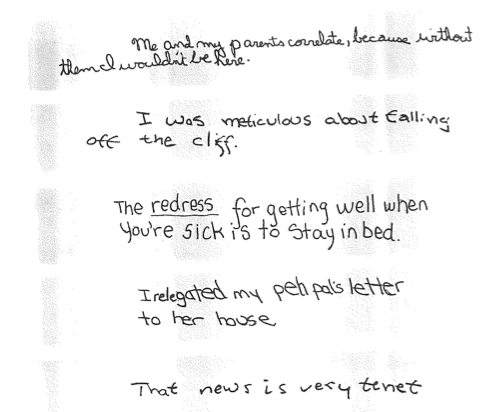 Me and my parents correlate, because without
them I wouldn't be here.
I was meticulous about falling
off the cliff.
The redress for getting well when
you're sick is to stay in bed.
I relegated my pen pal's letter
to her house
That news is very tenet